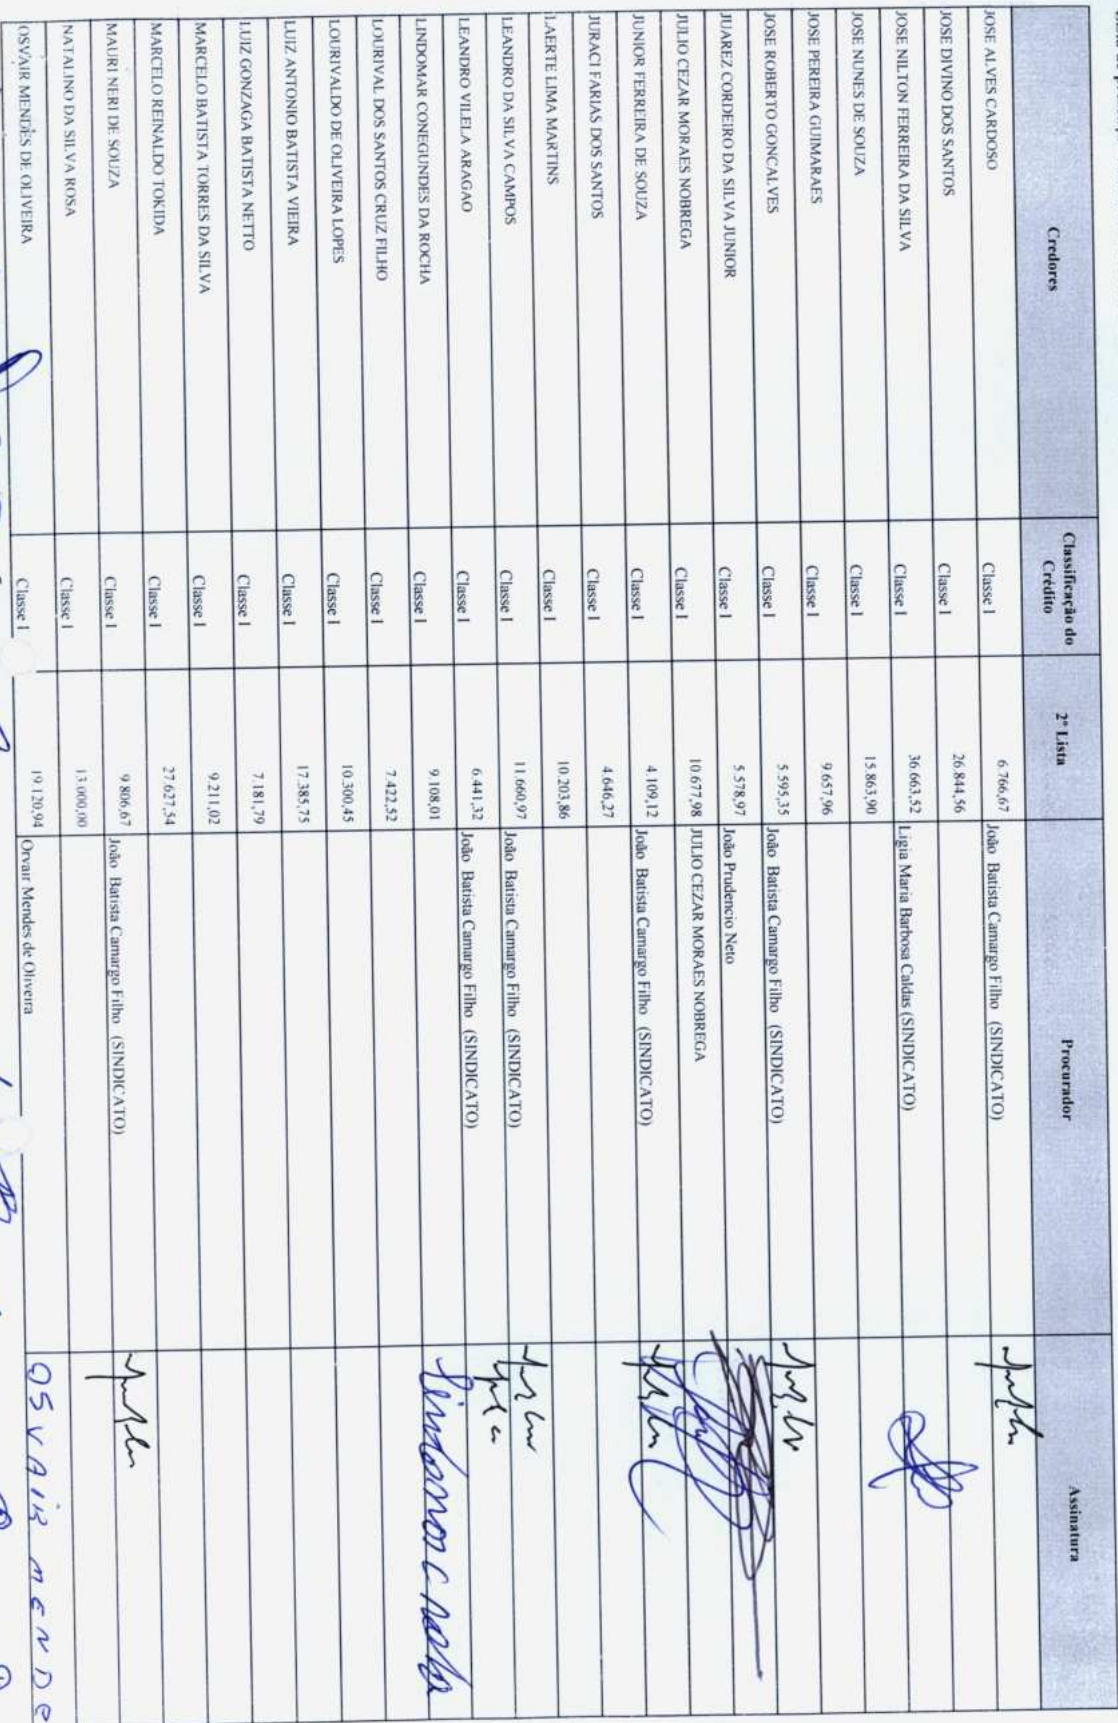 Credores Classificação do Crédito 2ª Lista Procurador Assinatura
JOSE ALVES CARDOSO Classe I 6.766,67 João Batista Camargo Filho (SINDICATO)
JOSE DIVINO DOS SANTOS Classe I 26.844,56
JOSE NILTON FERREIRA DA SILVA Classe I 36.663,52 Ligia Maria Barbosa Caldas (SINDICATO)
JOSE NUNES DE SOUZA Classe I 15.865,90
JOSE PEREIRA GUIMARAES Classe I 9.657,96
JOSE ROBERTO GONCALVES Classe I 5.595,35 João Batista Camargo Filho (SINDICATO)
JUAREZ CORDEIRO DA SILVA JUNIOR Classe I 5.578,97 João Prudencio Neto
JULIO CEZAR MORAES NOBREGA Classe I 10.677,98 JULIO CEZAR MORAES NOBREGA
JUNIOR FERREIRA DE SOUZA Classe I 4.109,12 João Batista Camargo Filho (SINDICATO)
JURACI FARIAS DOS SANTOS Classe I 4.646,27
LAERTE LIMA MARTINS Classe I 10.203,86
LEANDRO DA SILVA CAMPOS Classe I 11.660,97 João Batista Camargo Filho (SINDICATO)
LEANDRO VILELA ARAGAO Classe I 6.441,32 João Batista Camargo Filho (SINDICATO)
LINDOMAR CONEGUNDES DA ROCHA Classe I 9.108,01
LOURIVAL DOS SANTOS CRUZ FILHO Classe I 7.422,52
LOURIVALDO DE OLIVEIRA LOPES Classe I 10.300,45
LUIZ ANTONIO BATISTA VIEIRA Classe I 17.385,75
LUIZ GONZAGA BATISTA NETTO Classe I 7.181,79
MARCELO BATISTA TORRES DA SILVA Classe I 9.211,02
MARCELO REINALDO TOKIDA Classe I 27.627,54
MAURI NERI DE SOUZA Classe I 9.806,67 João Batista Camargo Filho (SINDICATO)
NATALINO DA SILVA ROSA Classe I 13.000,00
OSVAIR MENDES DE OLIVEIRA Classe I 19.120,94 Orvair Mendes de Oliveira OSVAIR MENDE